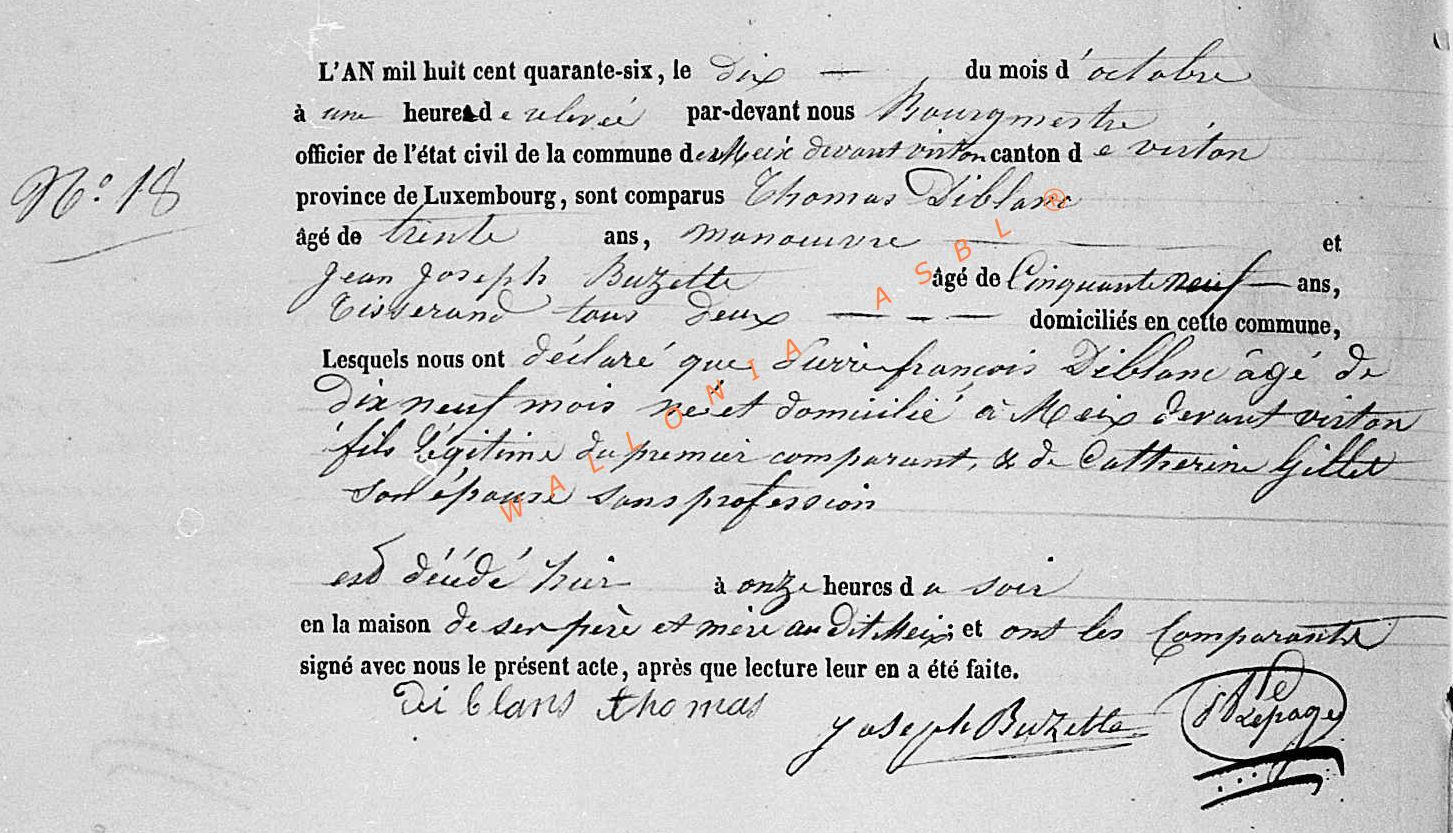 L'AN mil huit cent quarante-six, le dix — du mois d'octobre
à une heure de relevée par-devant nous Bourgmestre
officier de l'état civil de la commune de Meix devant virton canton de virton
N.o 18
province de Luxembourg, sont comparus Thomas Diblanc
âgé de trente ans, manoeuvre — et
Jean Joseph Buzette âgé de Cinquante neuf — ans,
Tisserand tous deux — - — domiciliés en cette commune,
Lesquels nous ont déclaré que Pierre françois Diblanc âgé de
Dix neuf mois né et domicilié à Meix devant virton
fils légitime du premier comparant, & de Catherine Gillet
son épouse sans profession
est décédé hier à onze heures du soir
en la maison de ses père et mère au dit Meix; et ont les Comparants
signé avec nous le présent acte, après que lecture leur en a été faite.
Di blans thomas
Joseph Buzette
Lepage
WALLONIA ASBL ®